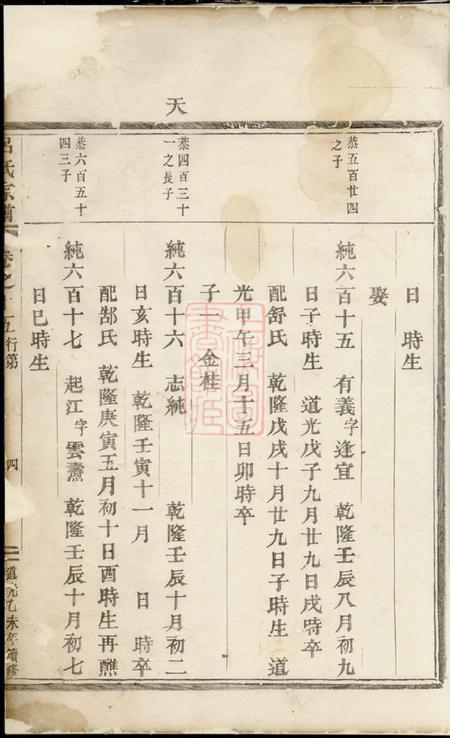 天
恭五百廿四
之子
恭四百三十
一之長子
恭六百五十
四三子
日 時生
娶
純六百十五 有義字逢宜 乾隆壬辰八月初九
日子時生 道光戊子九月廿九日戌時卒
配舒氏 乾隆戊戌十月廿九日子時生 道
光甲午三月十五日卯時卒
子一 金桂
純六百十六 志純 乾隆壬辰十月初二
日亥時生 乾隆壬寅十一月 日 時卒
配郜氏 乾隆庚寅五月初十日酉時生再醮
純六百十七 起江字雲燾 乾隆壬辰十月初七
日巳時生
呂氏宗譜 卷之十五行第 四 道光乙未年續修